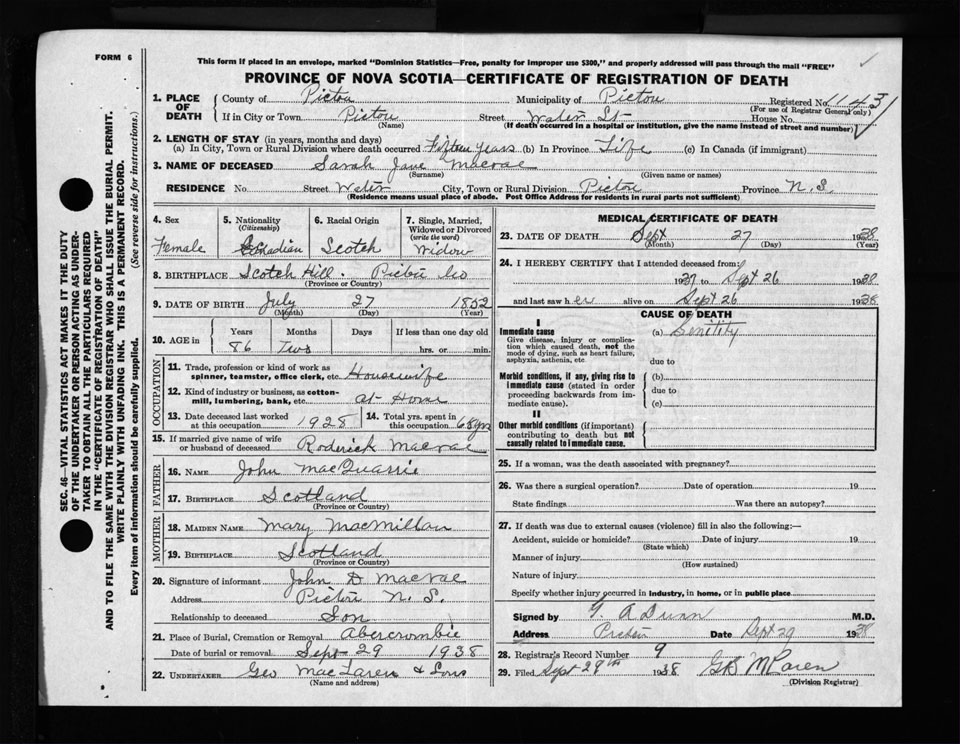 FORM 6
This form if placed in an envelope, marked "Dominion Statistics—Free, penalty for improper use $300," and properly addressed will pass through the mail "FREE"
PROVINCE OF NOVA SCOTIA—CERTIFICATE OF REGISTRATION OF DEATH
SEC. 46—VITAL STATISTICS ACT MAKES IT THE DUTY
OF THE UNDERTAKER OR PERSON ACTING AS UNDER-
TAKER TO OBTAIN ALL THE PARTICULARS REQUIRED
IN THE "CERTIFICATE OF REGISTRATION OF DEATH"
AND TO FILE THE SAME WITH THE DIVISION REGISTRAR WHO SHALL ISSUE THE BURIAL PERMIT.
WRITE PLAINLY WITH UNFADING INK. THIS IS A PERMANENT RECORD.
Every item of information should be carefully supplied. (See reverse side for instructions.)
1. PLACE OF DEATH
County of Pictou Municipality of Pictou Registered No. 1143
(For use of Registrar General only)
If in City or Town Pictou Street Water St House No.
(Name) (If death occurred in a hospital or institution, give the name instead of street and number)
2. LENGTH OF STAY (in years, months and days)
(a) In City, Town or Rural Division where death occurred Fifteen years (b) In Province Life (c) In Canada (if immigrant)
3. NAME OF DECEASED Sarah Jane Macrae
(Surname) (Given name or names)
RESIDENCE No. Street Water City, Town or Rural Division Pictou Province N.S.
(Residence means usual place of abode. Post Office Address for residents in rural parts not sufficient)
4. Sex 5. Nationality (Citizenship) 6. Racial Origin 7. Single, Married, Widowed or Divorced (write the word)
Female Canadian Scotch Widow
8. BIRTHPLACE Scotch Hill. Pictou Co
(Province or Country)
9. DATE OF BIRTH July 27 1852
(Month) (Day) (Year)
10. AGE in Years Months Days If less than one day old
86 Two hrs. or min.
OCCUPATION
11. Trade, profession or kind of work as spinner, teamster, office clerk, etc. Housewife
12. Kind of industry or business, as cotton-mill, lumbering, bank, etc. at Home
13. Date deceased last worked at this occupation 1928 14. Total yrs. spent in this occupation 68 yrs
15. If married give name of wife or husband of deceased Roderick Macrae
FATHER
16. NAME John MacQuarrie
17. BIRTHPLACE Scotland
(Province or Country)
MOTHER
18. MAIDEN NAME Mary Macmillan
19. BIRTHPLACE Scotland
(Province or Country)
20. Signature of informant John D Macrae
Address Pictou N. S.
Relationship to deceased Son
21. Place of Burial, Cremation or Removal Abercrombie
Date of burial or removal Sept 29 1938
22. UNDERTAKER Geo MacLaren & Sons
(Name and address)
MEDICAL CERTIFICATE OF DEATH
23. DATE OF DEATH Sept 27 1938
(Month) (Day) (Year)
24. I HEREBY CERTIFY that I attended deceased from:
1937 to Sept 26 1938
and last saw her alive on Sept 26 1938
CAUSE OF DEATH
I
Immediate cause (a) Senility
Give disease, injury or complica-
tion which caused death, not the
mode of dying, such as heart failure,
asphyxia, asthenia, etc.
due to
Morbid conditions, if any, giving rise to (b)
immediate cause (stated in order due to
proceeding backwards from im- (c)
mediate cause).
II
Other morbid conditions (if important)
contributing to death but not
causally related to immediate cause.
25. If a woman, was the death associated with pregnancy?
26. Was there a surgical operation? Date of operation 19
State findings Was there an autopsy?
27. If death was due to external causes (violence) fill in also the following:—
Accident, suicide or homicide? Date of injury 19
(State which)
Manner of injury
(How sustained)
Nature of injury
Specify whether injury occurred in industry, in home, or in public place
Signed by G. A Dunn M.D.
Address Pictou Date Sept 29 1938
28. Registrar's Record Number 9
29. Filed Sept 29th 1938 GB McLaren
(Division Registrar)